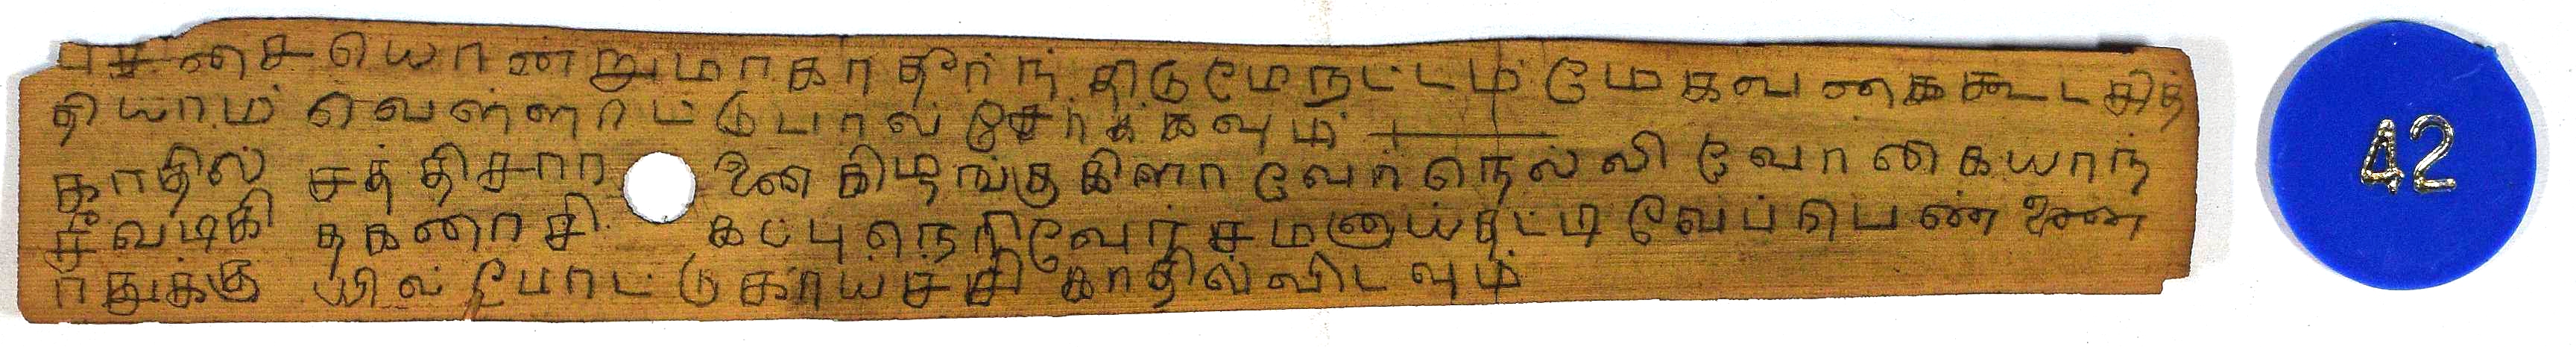 பச்சையொன்றுமாகாதீர்ந்திடுமேநட்டம் மேகவகைகூடசித்
தியாம் வெள்ளாட்டுபால் சேர்க்கவும்
காதில் சத்திசார ணை கிழங்குகிளா வேர்நெல்லி வோகையாந்
சீவடிகி தகணாசி கப்புநெறிவேர்சமனாய்தட்டி வேப்பெண்ணை
ர்துக்கு யில் போட்டுகாய்ச்சி காதில்விடவும்
42